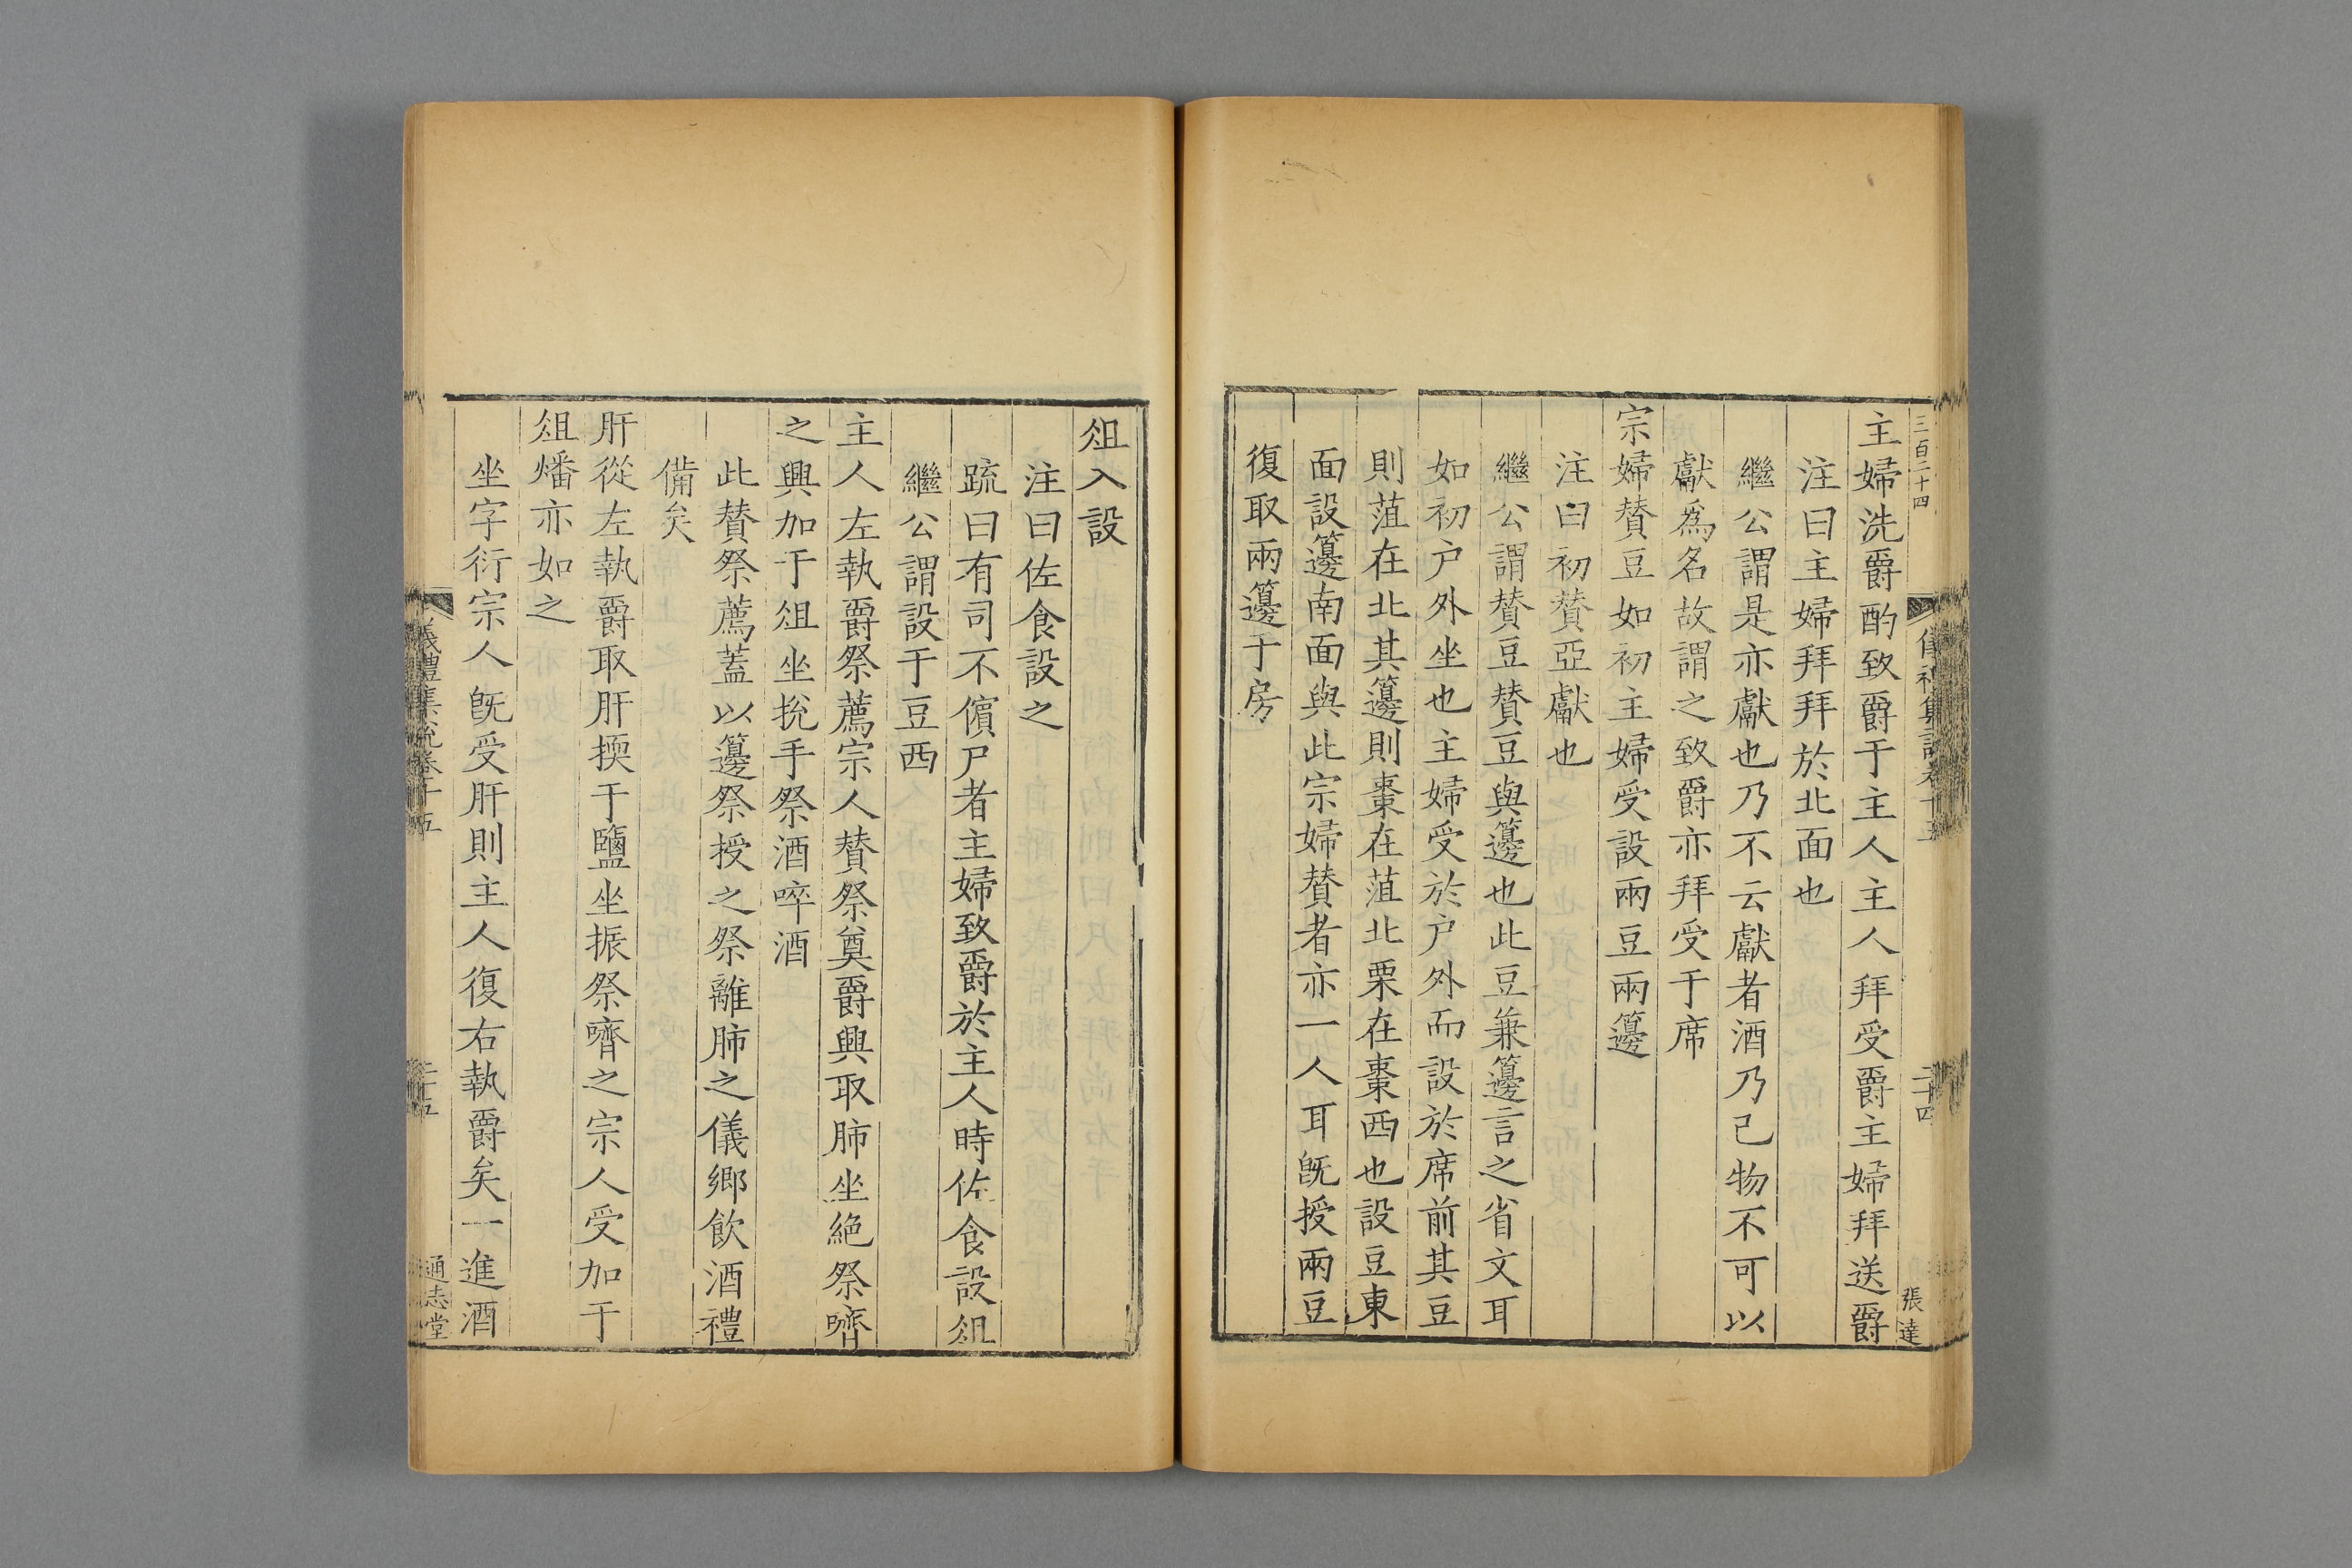 三百二十四
儀禮集說卷十五
二十四
張達
主婦洗爵酌致爵于主人主人拜受爵主婦拜送爵
注曰主婦拜拜於北面也
繼公謂是亦獻也乃不云獻者酒乃己物不可以
獻爲名故謂之致爵亦拜受于席
宗婦賛豆如初主婦受設兩豆兩籩
注曰初賛亞獻也
繼公謂賛豆賛豆與籩也此豆兼籩言之省文耳
如初户外坐也主婦受於户外而設於席前其豆
則菹在北其籩則棗在菹北栗在棗西也設豆東
面設籩南面與此宗婦賛者亦一人耳旣授兩豆
復取兩籩于房
俎入設
注曰佐食設之
疏曰有司不儐尸者主婦致爵於主人時佐食設俎
繼公謂設于豆西
主人左執爵祭薦宗人賛祭奠爵興取肺坐絶祭嚌
之興加于俎坐挩手祭酒啐酒
此賛祭薦蓋以籩祭授之祭離肺之儀鄉飲酒禮
備矣
肝從左執爵取肝擩于鹽坐振祭嚌之宗人受加于
俎燔亦如之
坐字衍宗人旣受肝則主人復右執爵矣一進酒
儀禮集說卷十五
二十五
通志堂